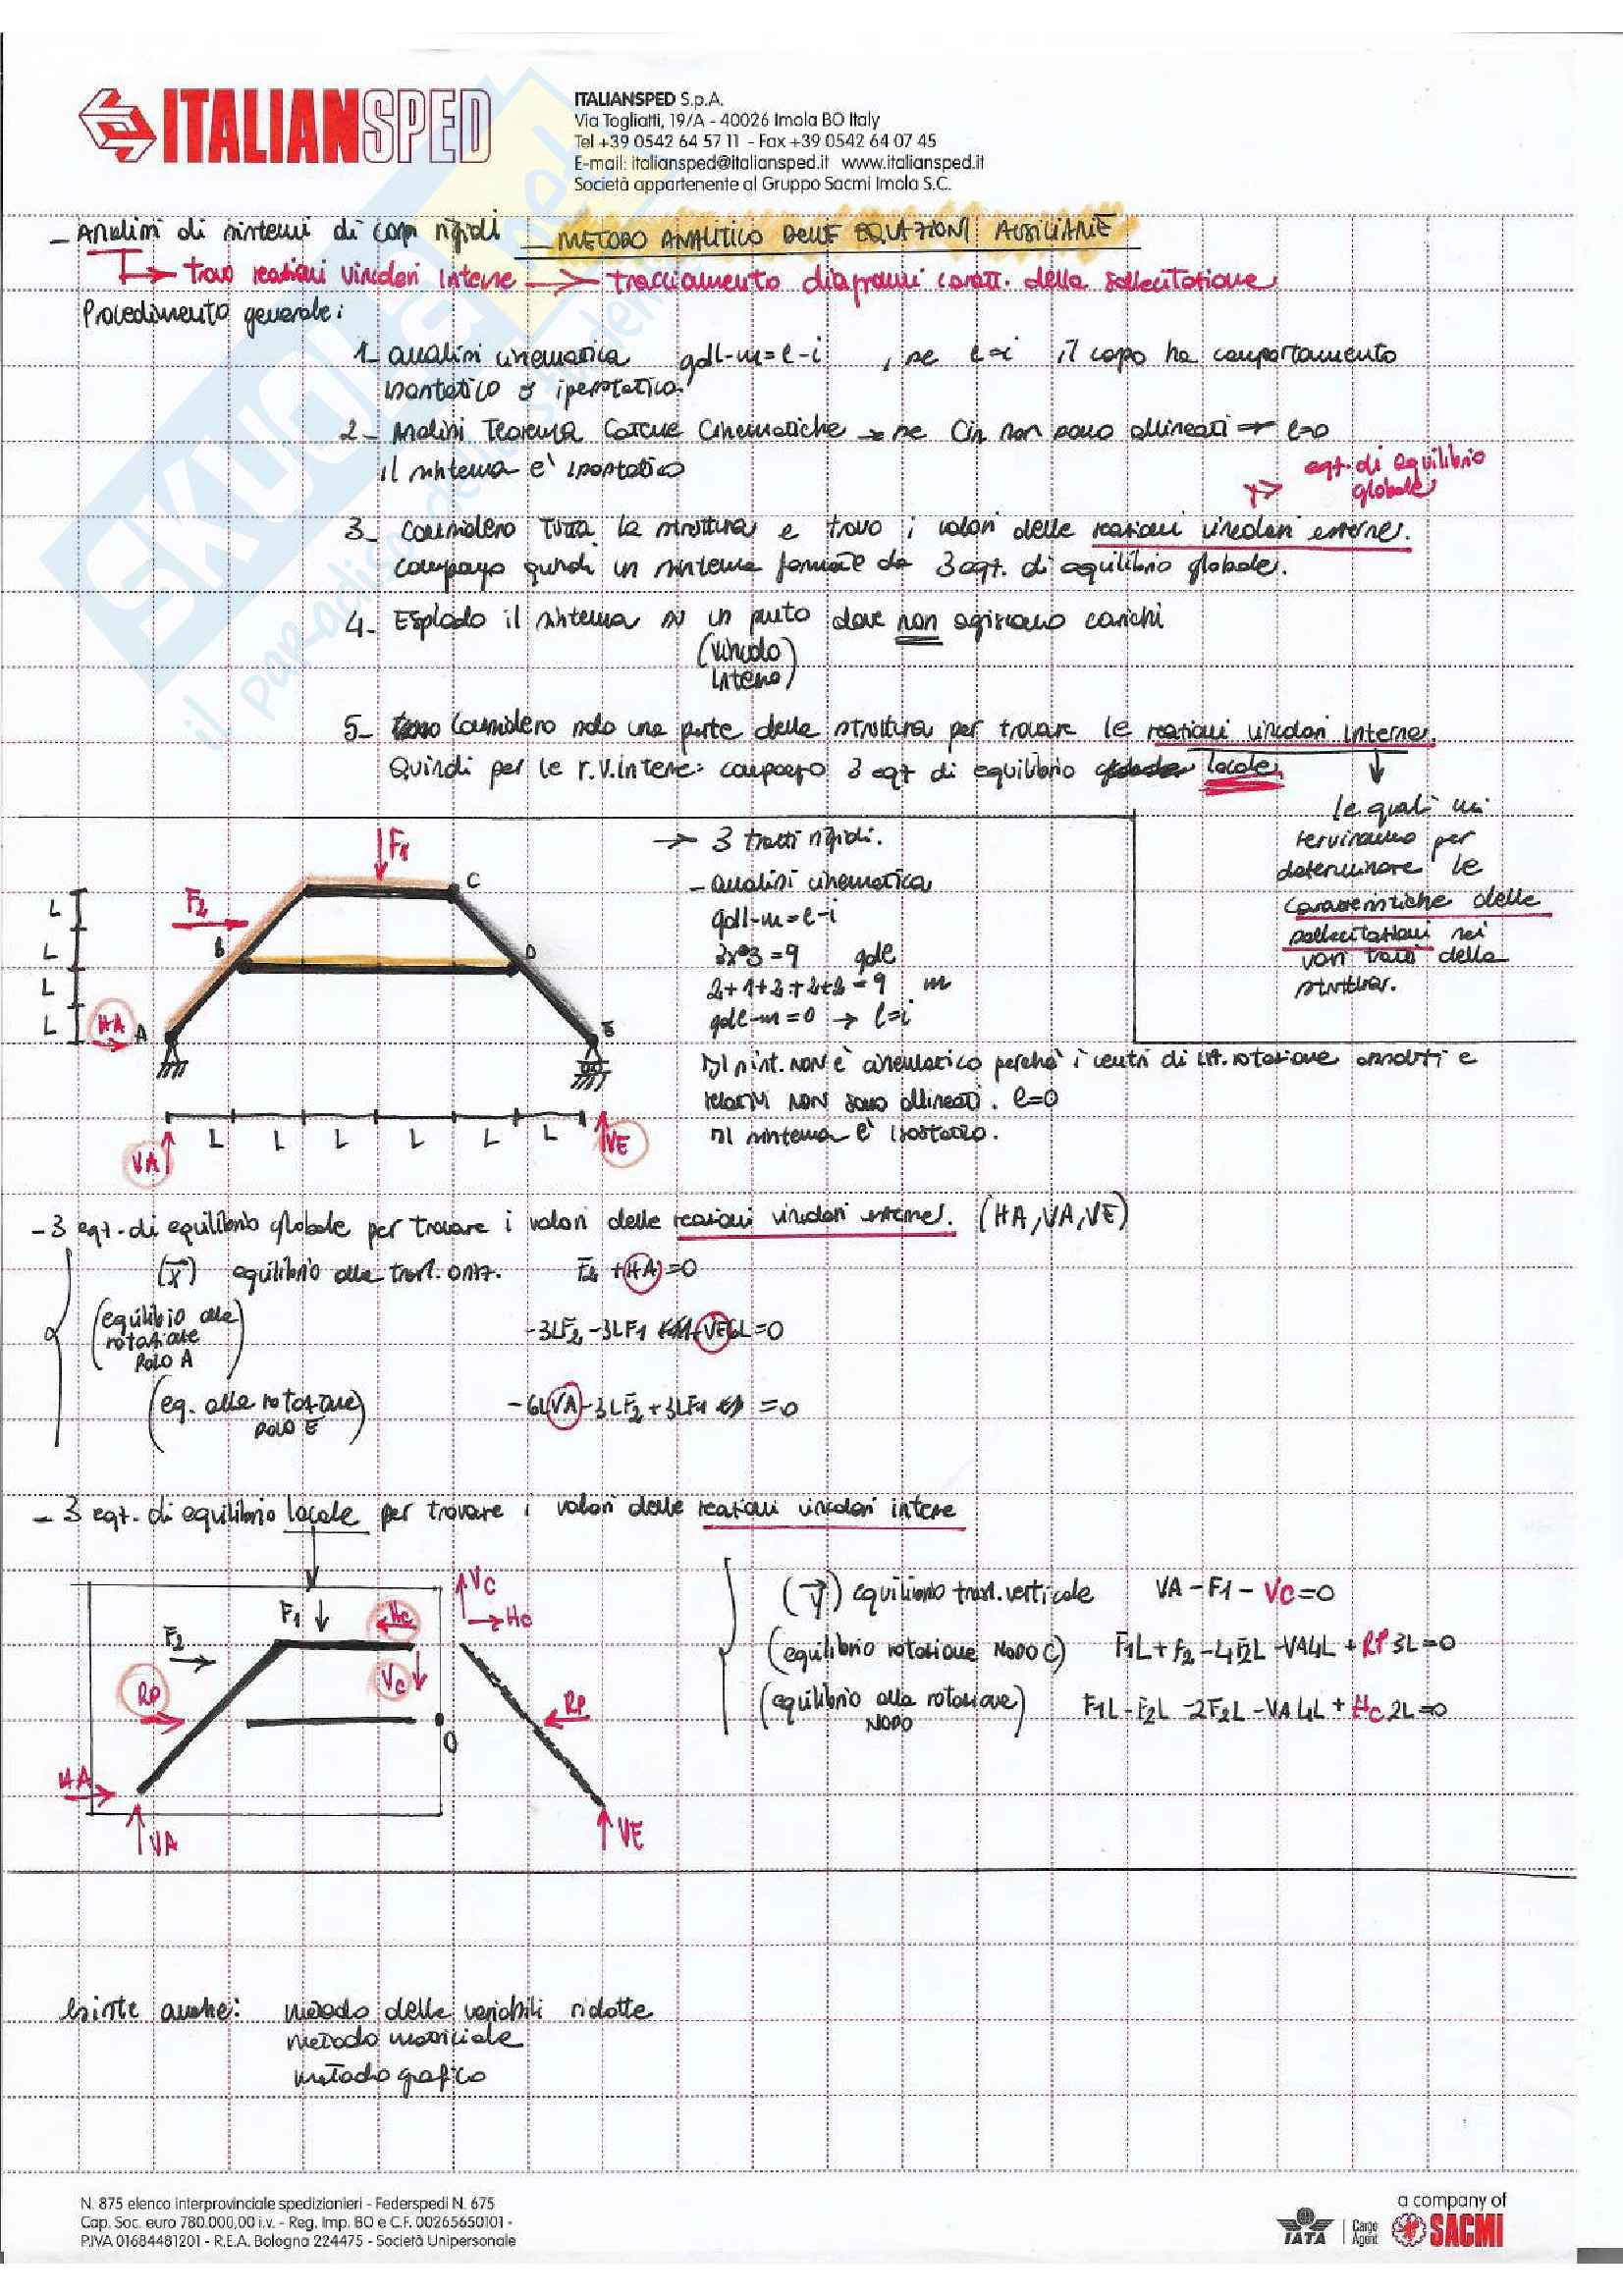 ITALIANSPED
ITALIANSPED S.p.A.
Via Togliatti, 19/A - 40026 Imola BO Italy
Tel +39 0542 64 57 11 - Fax +39 0542 64 07 45
E-mail: italiansped@italiansped.it www.italiansped.it
Società appartenente al Gruppo Sacmi Imola S.C.
- Analisi di sistemi di corpi rigidi - METODO ANALITICO DELLE EQUAZIONI AUSILIARIE
trovo reazioni vincolari interne → tracciamento diagrammi caratt. della sollecitazione
Procedimento generale:
1- analisi cinematica gdl-m=l-i , se l=i il corpo ha comportamento
isostatico o iperstatico
2- Analisi Teorema Catene Cinematiche → se Cir non sono allineati → l=0
il sistema è isostatico
eqz. di equilibrio
globale
3- Considero tutta la struttura e trovo i valori delle reazioni vincolari esterne.
compongo quindi un sistema formato da 3 eqz. di equilibrio globale.
4- Esplodo il sistema in un punto dove non agiscono carichi
(vincolo
interno)
5- Considero solo una parte della struttura per trovare le reazioni vincolari interne.
Quindi per le r.v.interne: compongo 3 eqz di equilibrio locale
le quali mi
serviranno per
determinare le
caratteristiche delle
sollecitazioni nei
vari tratti della
struttura.
→ 3 tratti rigidi.
- analisi cinematica
gdl-m=l-i
3x3=9 gdl
2+1+2+2+2=9 m
gdl-m=0 → l=i
Il sist. NON è cinematico perchè i centri di ist. rotazione assoluti e
relativi NON sono allineati. l=0
Il sistema è isostatico.
F1
F2
C
B
D
A
E
HA
L
L
L
L
L L L L L L
VA
VE
- 3 eqz. di equilibrio globale per trovare i valori delle reazioni vincolari esterne. (HA, VA, VE)
(x) equilibrio alla trasl. orizz. F2 + HA = 0
(equilibrio alla
rotazione
POLO A)
-3LF2 -3LF1 +VE6L=0
(eq. alla rotazione
POLO E)
-6LVA-3LF2+3LF1 =0
- 3 eqz. di equilibrio locale per trovare i valori delle reazioni vincolari interne
F1
F2
Hc
Vc
RP
HA
VA
O
Vc
Hc
RP
VE
(y) equilibrio trasl. verticale VA - F1 - VC=0
(equilibrio rotazione NODO C) F1L+F2-4F2L-VA4L+RP3L=0
(equilibrio alla rotazione)
NODO
F1L-F2L-2F2L-VA4L+Hc2L=0
Esiste anche: metodo delle variabili ridotte
metodo matriciale
metodo grafico
N. 875 elenco interprovinciale spedizionieri - Federspedi N. 675
Cap. Soc. euro 780.000,00 i.v. - Reg. Imp. BO e C.F. 00265650101 -
P.IVA 01684481201 - R.E.A. Bologna 224475 - Società Unipersonale
IATA
Cargo
Agent
a company of
SACMI